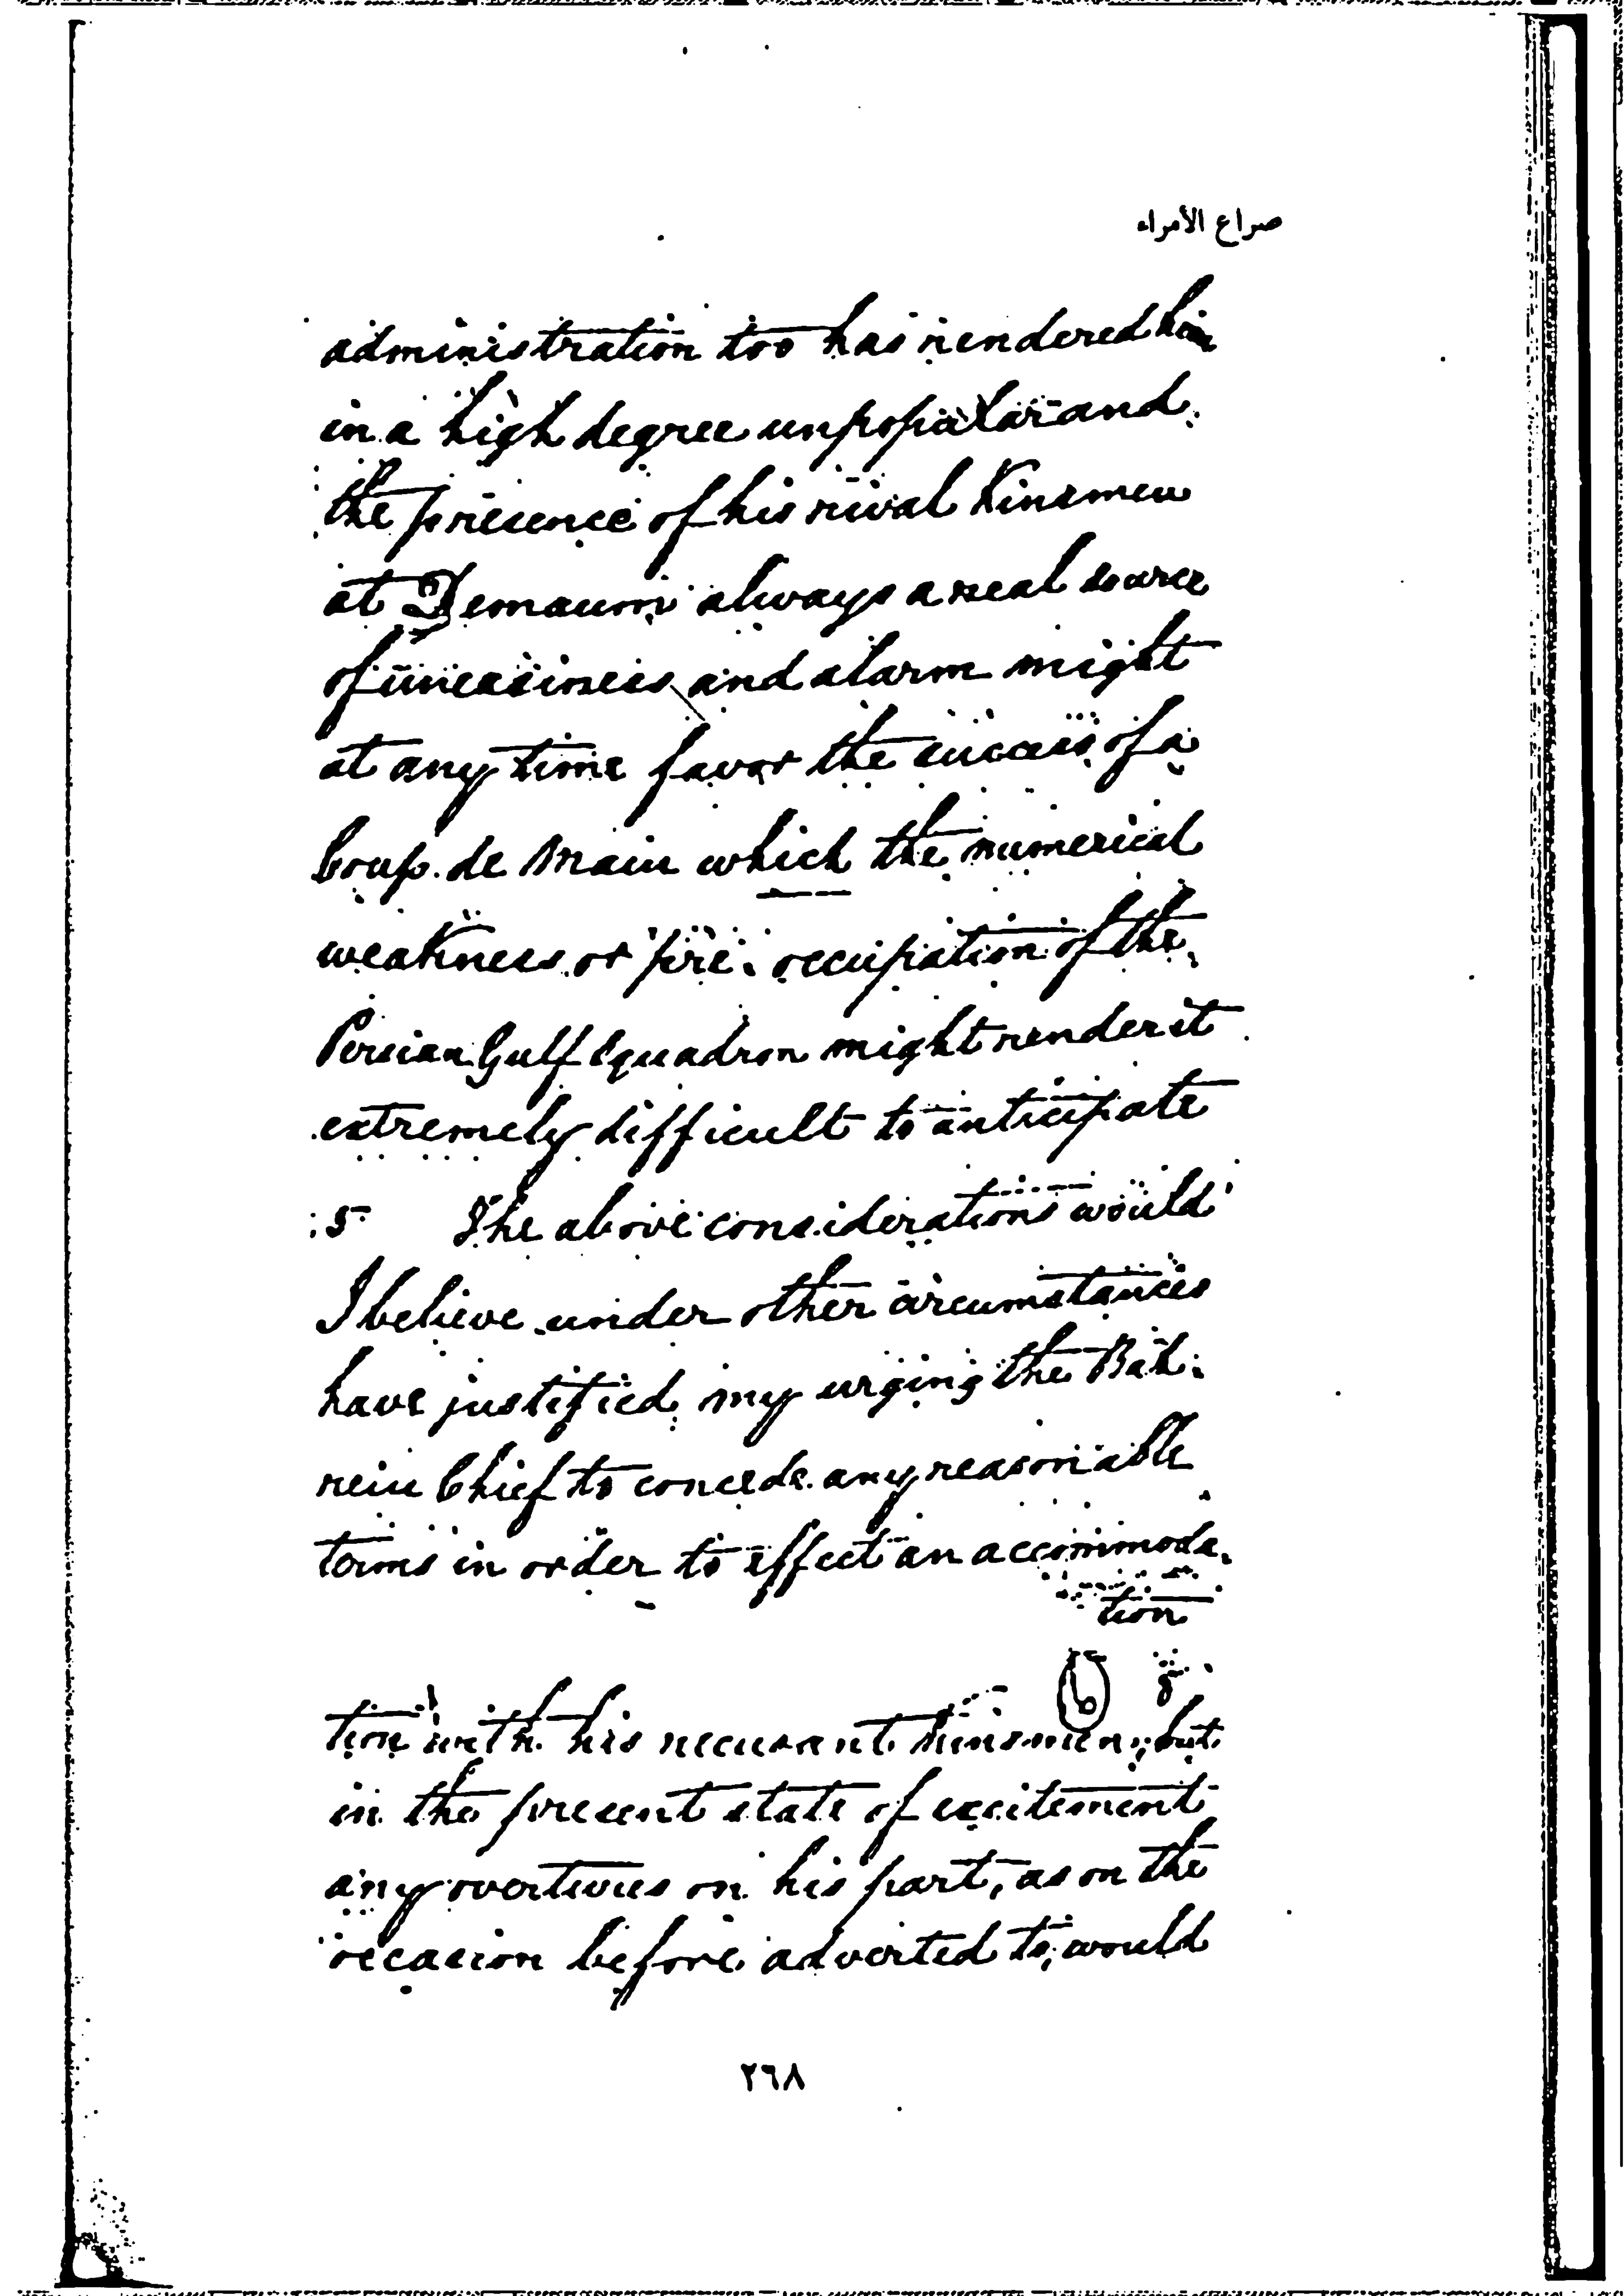 صراع الأمراء
administration too has rendered him
in a high degree unpopular and
the presence of his rival Kinsmen
at Demaum always a real source
of uneasiness and alarm might
at any time favor the success of a
Coup de Main which the numerical
weakness or pre-occupation of the
Persian Gulf Squadron might render it
extremely difficult to anticipate
5 The above considerations would
I believe under other circumstances
have justified my urging the Bah-
rein Chief to concede any reasonable
terms in order to effect an accommoda-
tion
tion with his recusant kinsmen; but
in the present state of excitement
any overtures on his part, as on the
occasion before adverted to, would
٢٦٨